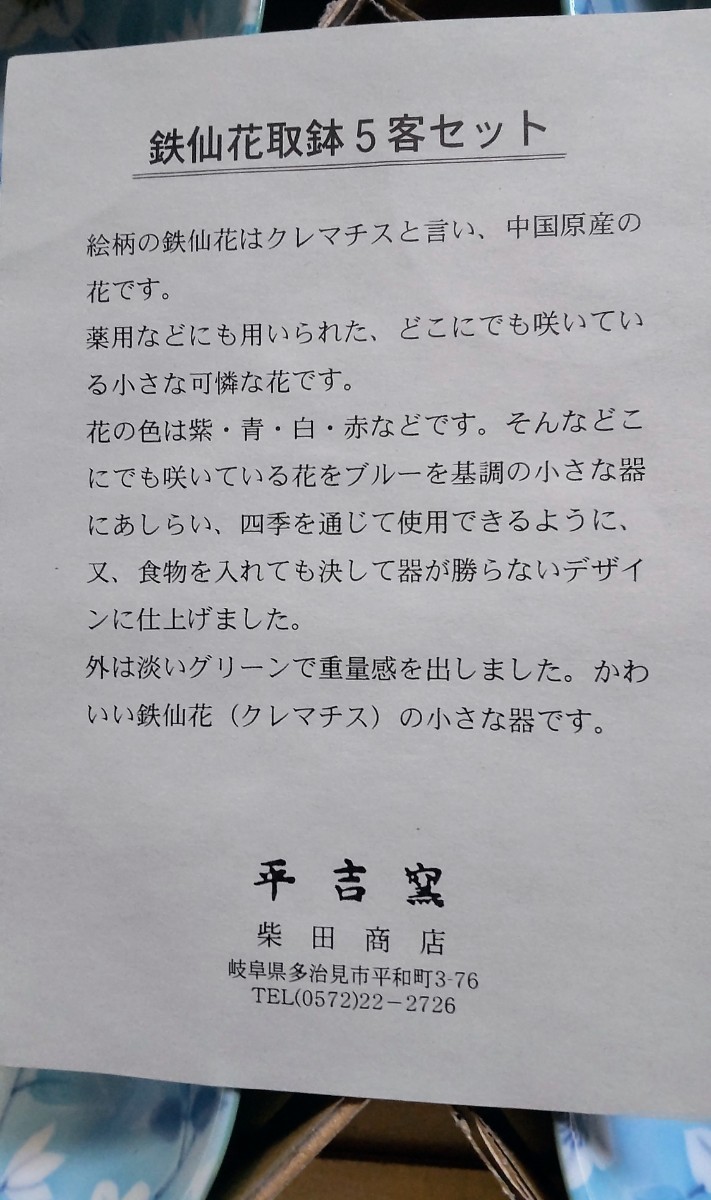 鉄仙花取鉢５客セット
絵柄の鉄仙花はクレマチスと言い、中国原産の
花です。
薬用などにも用いられた、どこにでも咲いてい
る小さな可憐な花です。
花の色は紫・青・白・赤などです。そんなどこ
にでも咲いている花をブルーを基調の小さな器
にあしらい、四季を通じて使用できるように、
又、食物を入れても決して器が勝らないデザイ
ンに仕上げました。
外は淡いグリーンで重量感を出しました。かわ
いい鉄仙花（クレマチス）の小さな器です。
平吉窯
柴田商店
岐阜県多治見市平和町3-76
TEL(0572)22－2726